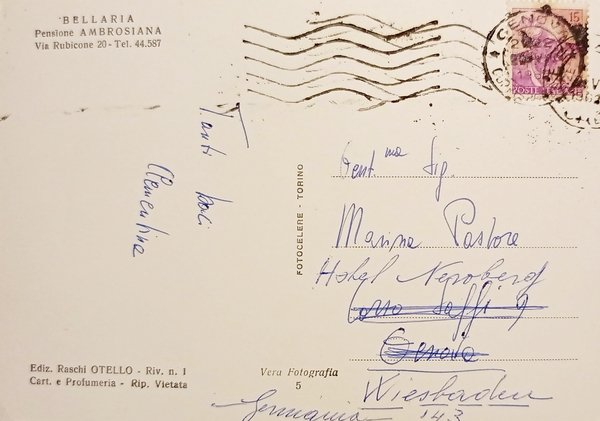 BELLARIA
Pensione AMBROSIANA
Via Rubicone 20 - Tel. 44.587
GENOVA
15
POSTE
Tanti baci
Clementina
FOTOCELERE - TORINO
Gent.ma Sig.
Marina Pastore
Hotel Neroberg
Corso Saffi 9
Genova
Wiesbaden
Germania 143
Ediz. Raschi OTELLO - Riv. n. 1
Cart. e Profumeria - Rip. Vietata
Vera Fotografia
5